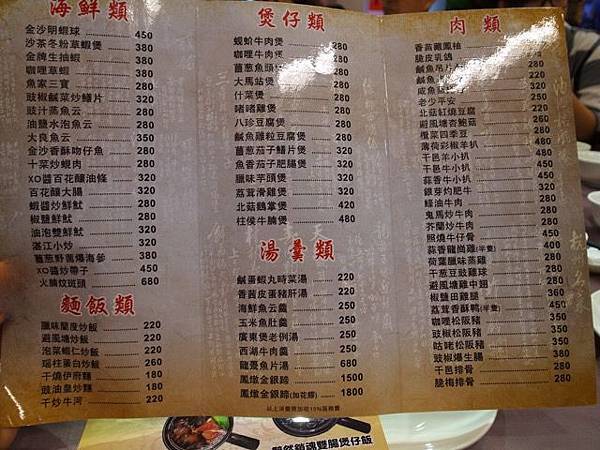 海鮮類
金沙明蝦球 450
沙茶冬粉草蝦煲 380
金牌生抽蝦 380
咖哩草蝦 380
魚家三寶 280
豉椒鹹菜炒鱔片 320
豉汁蒸魚云 280
油鹽水泡魚云 280
大良魚云 350
金沙香酥吻仔魚 280
十菜炒蜆肉 280
XO醬百花釀油條 320
百花釀大腸 320
蝦醬炒鮮魷 280
椒鹽鮮魷 280
油泡雙鮮魷 320
湛江小炒 320
薑葱野菌爆海參 380
XO醬炒帶子 450
火腩炆斑頭 680
麵飯類
臘味蘭度炒飯 220
避風塘炒飯 220
泡菜蝦仁炒飯 220
瑤柱蛋白炒飯 260
干燒伊府麵 180
豉油皇炒麵 180
干炒牛河 220
煲仔類
蜆蚧牛肉煲 280
咖哩牛肉煲 280
薑葱魚頭煲 280
大馬站煲 280
什菜煲 280
啫啫雞煲 280
八珍豆腐煲 280
鹹魚雞粒豆腐煲 280
薑葱茄子鱔片煲 320
魚香茄子肥腸煲 320
臘味芋頭煲 320
荔茸滑雞煲 320
北菇鵝掌煲 420
柱侯牛腩煲 480
湯羹類
鹹蛋蝦丸時菜湯 220
香茜皮蛋豬肝湯 220
海鮮魚云羹 250
玉米魚肚羹 250
廣東煲老例湯 250
西湖牛肉羹 250
龍躉魚片湯 350
鳳燉金銀蹄 1500
鳳燉金銀蹄(加花膠) 1800
以上消費需加收10%服務費
肉類
香茜藏鳳袖
脆皮乳鴿
鹹魚吊片 280
鹹魚 220
咸魚 220
老少平安 250
北菇紅燒豆腐 220
避風塘杏鮑菇 260
欖菜四季豆 280
薄荷彩椒羊扒 480
干邑羊小扒 450
干邑牛小扒 450
蒜香牛小扒 450
銀芽灼肥牛 380
蠔油牛肉 280
鬼馬炒牛肉 280
芥蘭炒牛肉 280
照燒牛仔骨 450
蒜香龍崗雞(半隻) 400
荷葉臘味蒸雞 280
干葱豆豉雞球 280
避風塘雞中翅 280
椒鹽田雞腿 360
荔茸香酥鴨(半隻) 450
咖哩松阪豬 350
咕咾松阪豬 350
豉椒爆生腸 350
干邑排骨 280
脆梅排骨 280
黯然銷魂雙腸煲仔飯